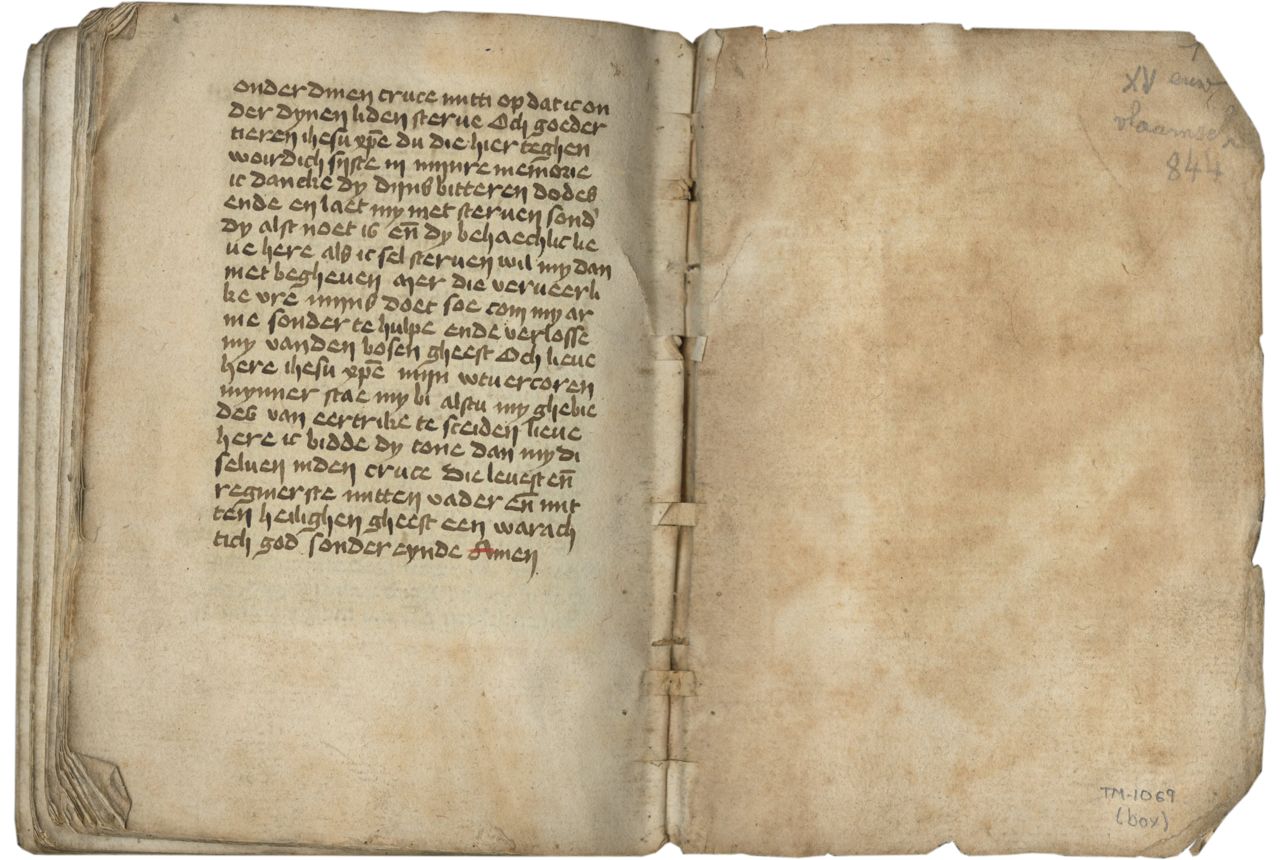 onder dinen cruce mitti op dat ic on
der dynen liden sterue Och goeder
tieren ihesu xp̄e du die hier teghen
woirdich sijste in mijnre memorie
ic dancke dy dijns bitteren dodes
ende en laet my niet steruen sond'
dy alst noet is en̄ dy behaechlic lie
ue here als ic sel steruen wil my dan
niet begheuen mer die verueerli
ke vre mijns doet soe com my ar
me sonder te hulpe ende verlosse
my vanden bosen gheest Och lieue
here ihesu xp̄e mijn wtuercoren
mynner stae my bi alstu my ghebie
des van eertrike te sceiden lieue
here ic bidde dy tone dan my di
seluen inden cruce Die leuest en̄
regnierste mitten vader en̄ mit
ten heilighen gheest een warach
tich god sonder eynde Amen
XV euw
vlaamsch
844
TM-1069
(box)